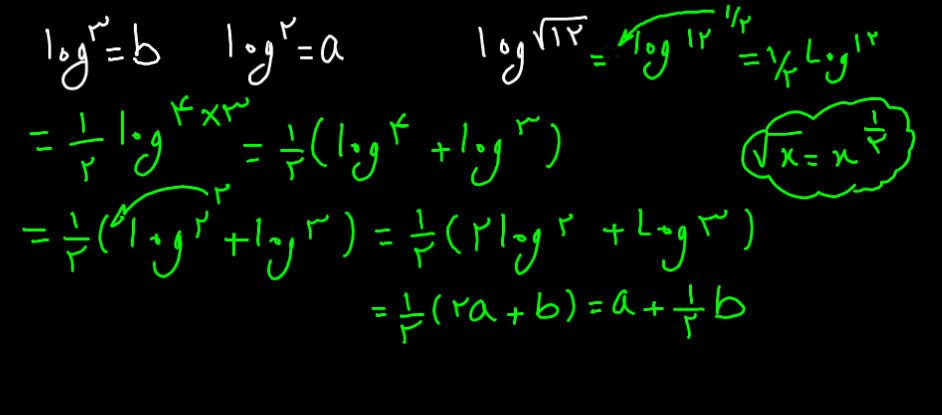 log۳ = b log۲ = a log√۱۲ = log۱۲^۱/۲ = ۱/۲ Log۱۲
= ۱/۲ log۴×۳ = ۱/۲ (log۴ + log۳) √x = x^۱/۲
= ۱/۲ (log۲^۲ + log۳) = ۱/۲ (۲log۲ + Log۳)
= ۱/۲ (۲a + b) = a + ۱/۲ b